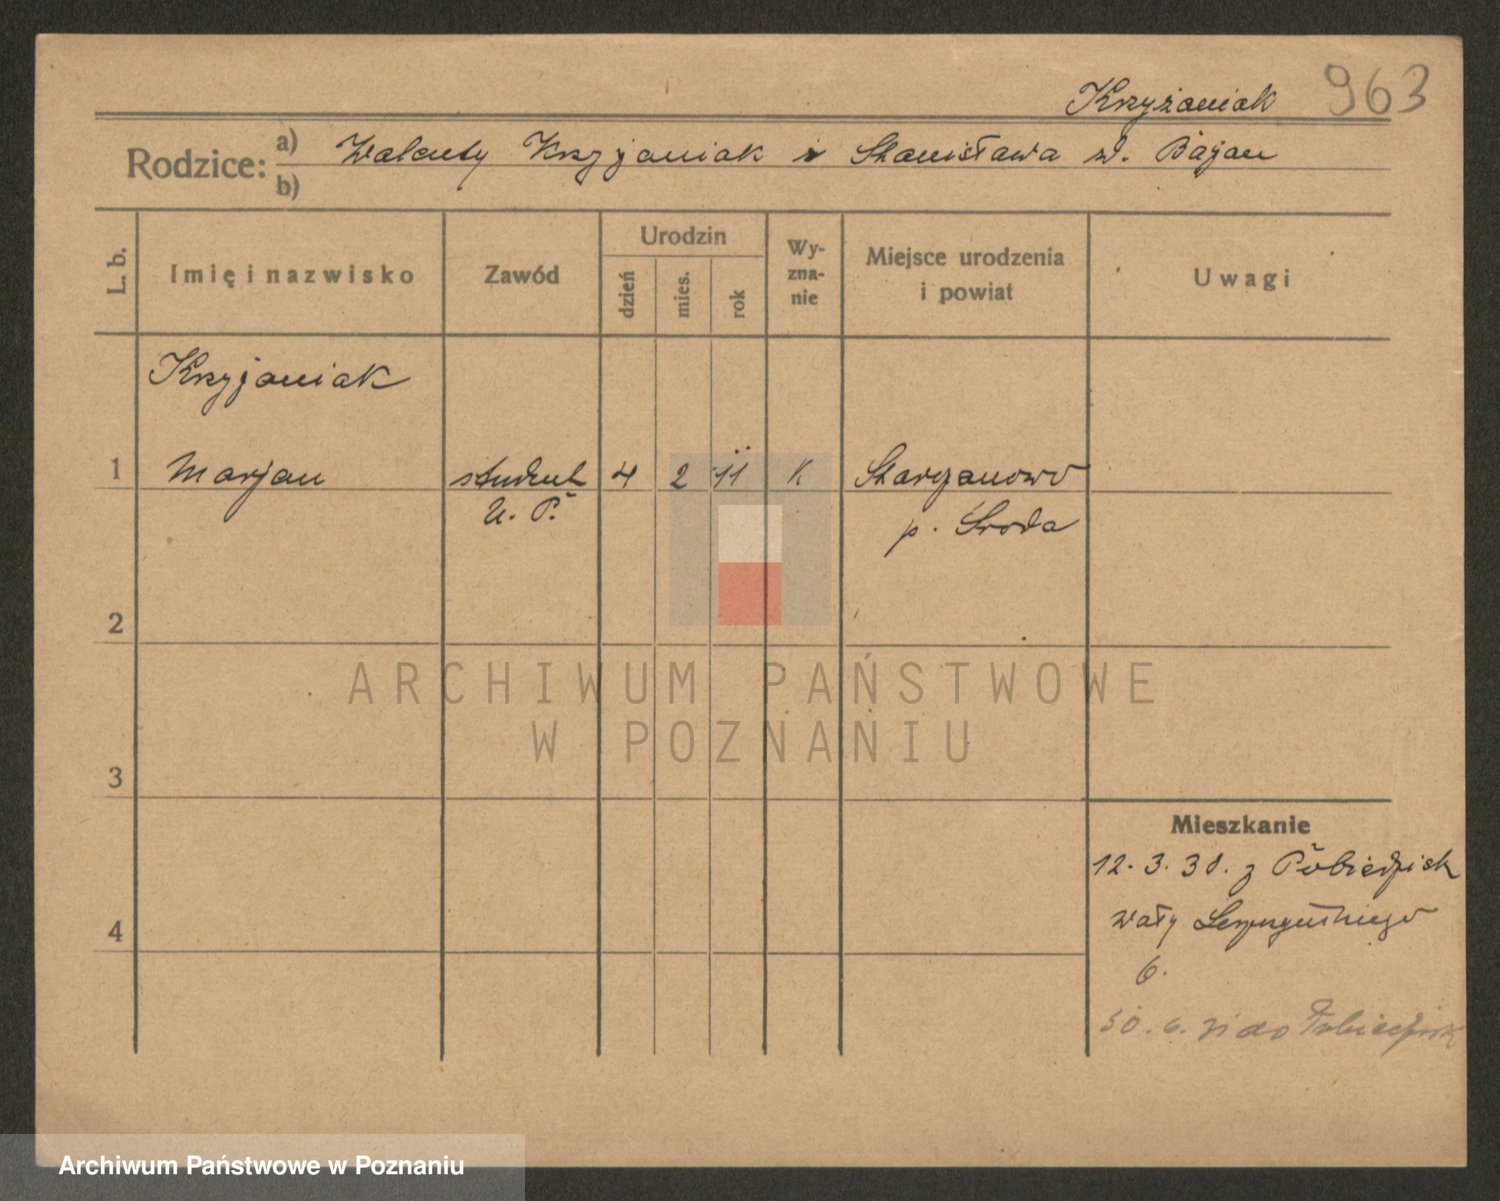 Krzyżaniak 963
Rodzice: a) Walenty Krzyżaniak i Stanisława ż. Bajan
b)
L. b. Imię i nazwisko Zawód Urodzin dzień mies. rok Wy-zna-nie Miejsce urodzenia i powiat Uwagi
Krzyżaniak
1 Marjan student 4 2 11 K Starczanowo
U. P. p. Środa
2
ARCHIWUM PAŃSTWOWE
W POZNANIU
3
Mieszkanie
12. 3. 30. z Pobiedzisk
4 wały Leszczyńskiego
6.
30. 6. 31 do Pobiedzisk
Archiwum Państwowe w Poznaniu